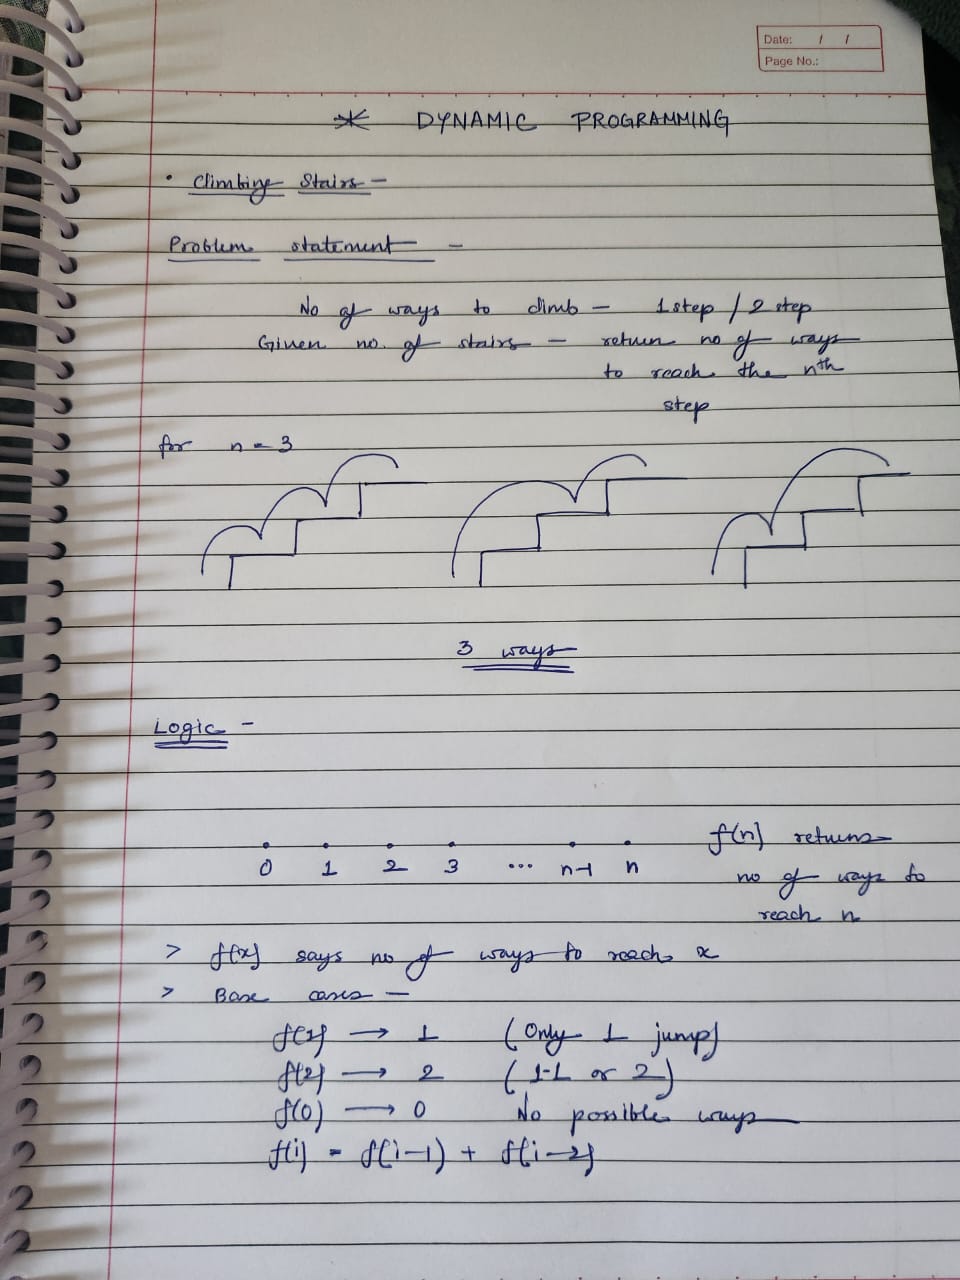 Date: / /
Page No.:
* DYNAMIC PROGRAMMING
• Climbing Stairs –
Problem statement –
No of ways to climb – 1 step / 2 step
Given no. of stairs – return no of ways
to reach the nth
step
for n = 3
3 ways
Logic –
f(n) returns
0 1 2 3 ... n-1 n
no of ways to
reach n
> f(x) says no of ways to reach x
> Base cases –
f(1) → 1 (Only 1 jump)
f(2) → 2 (1-1 or 2)
f(0) → 0 No possible ways
f(i) = f(i-1) + f(i-2)